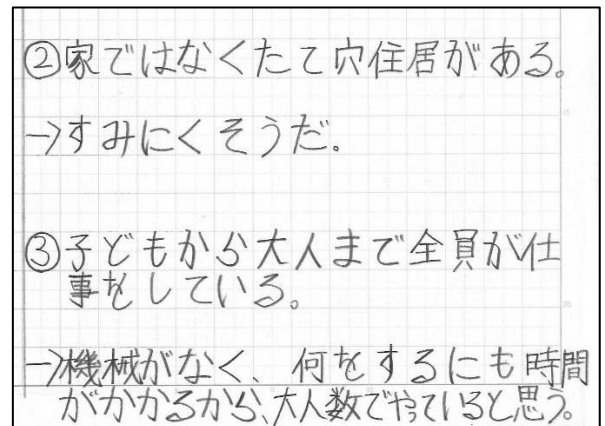 ②家ではなくたて穴住居がある。
→すみにくそうだ。
③子どもから大人まで全員が仕
事をしている。
→機械がなく、何をするにも時間
がかかるから、大人数でやっていると思う。